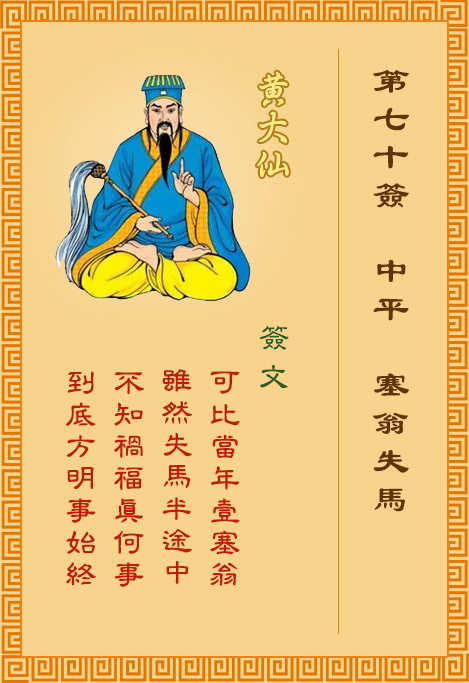 第七十簽　中平　塞翁失馬
黄大仙
簽文
可比當年壹塞翁
雖然失馬半途中
不知禍福眞何事
到底方明事始終